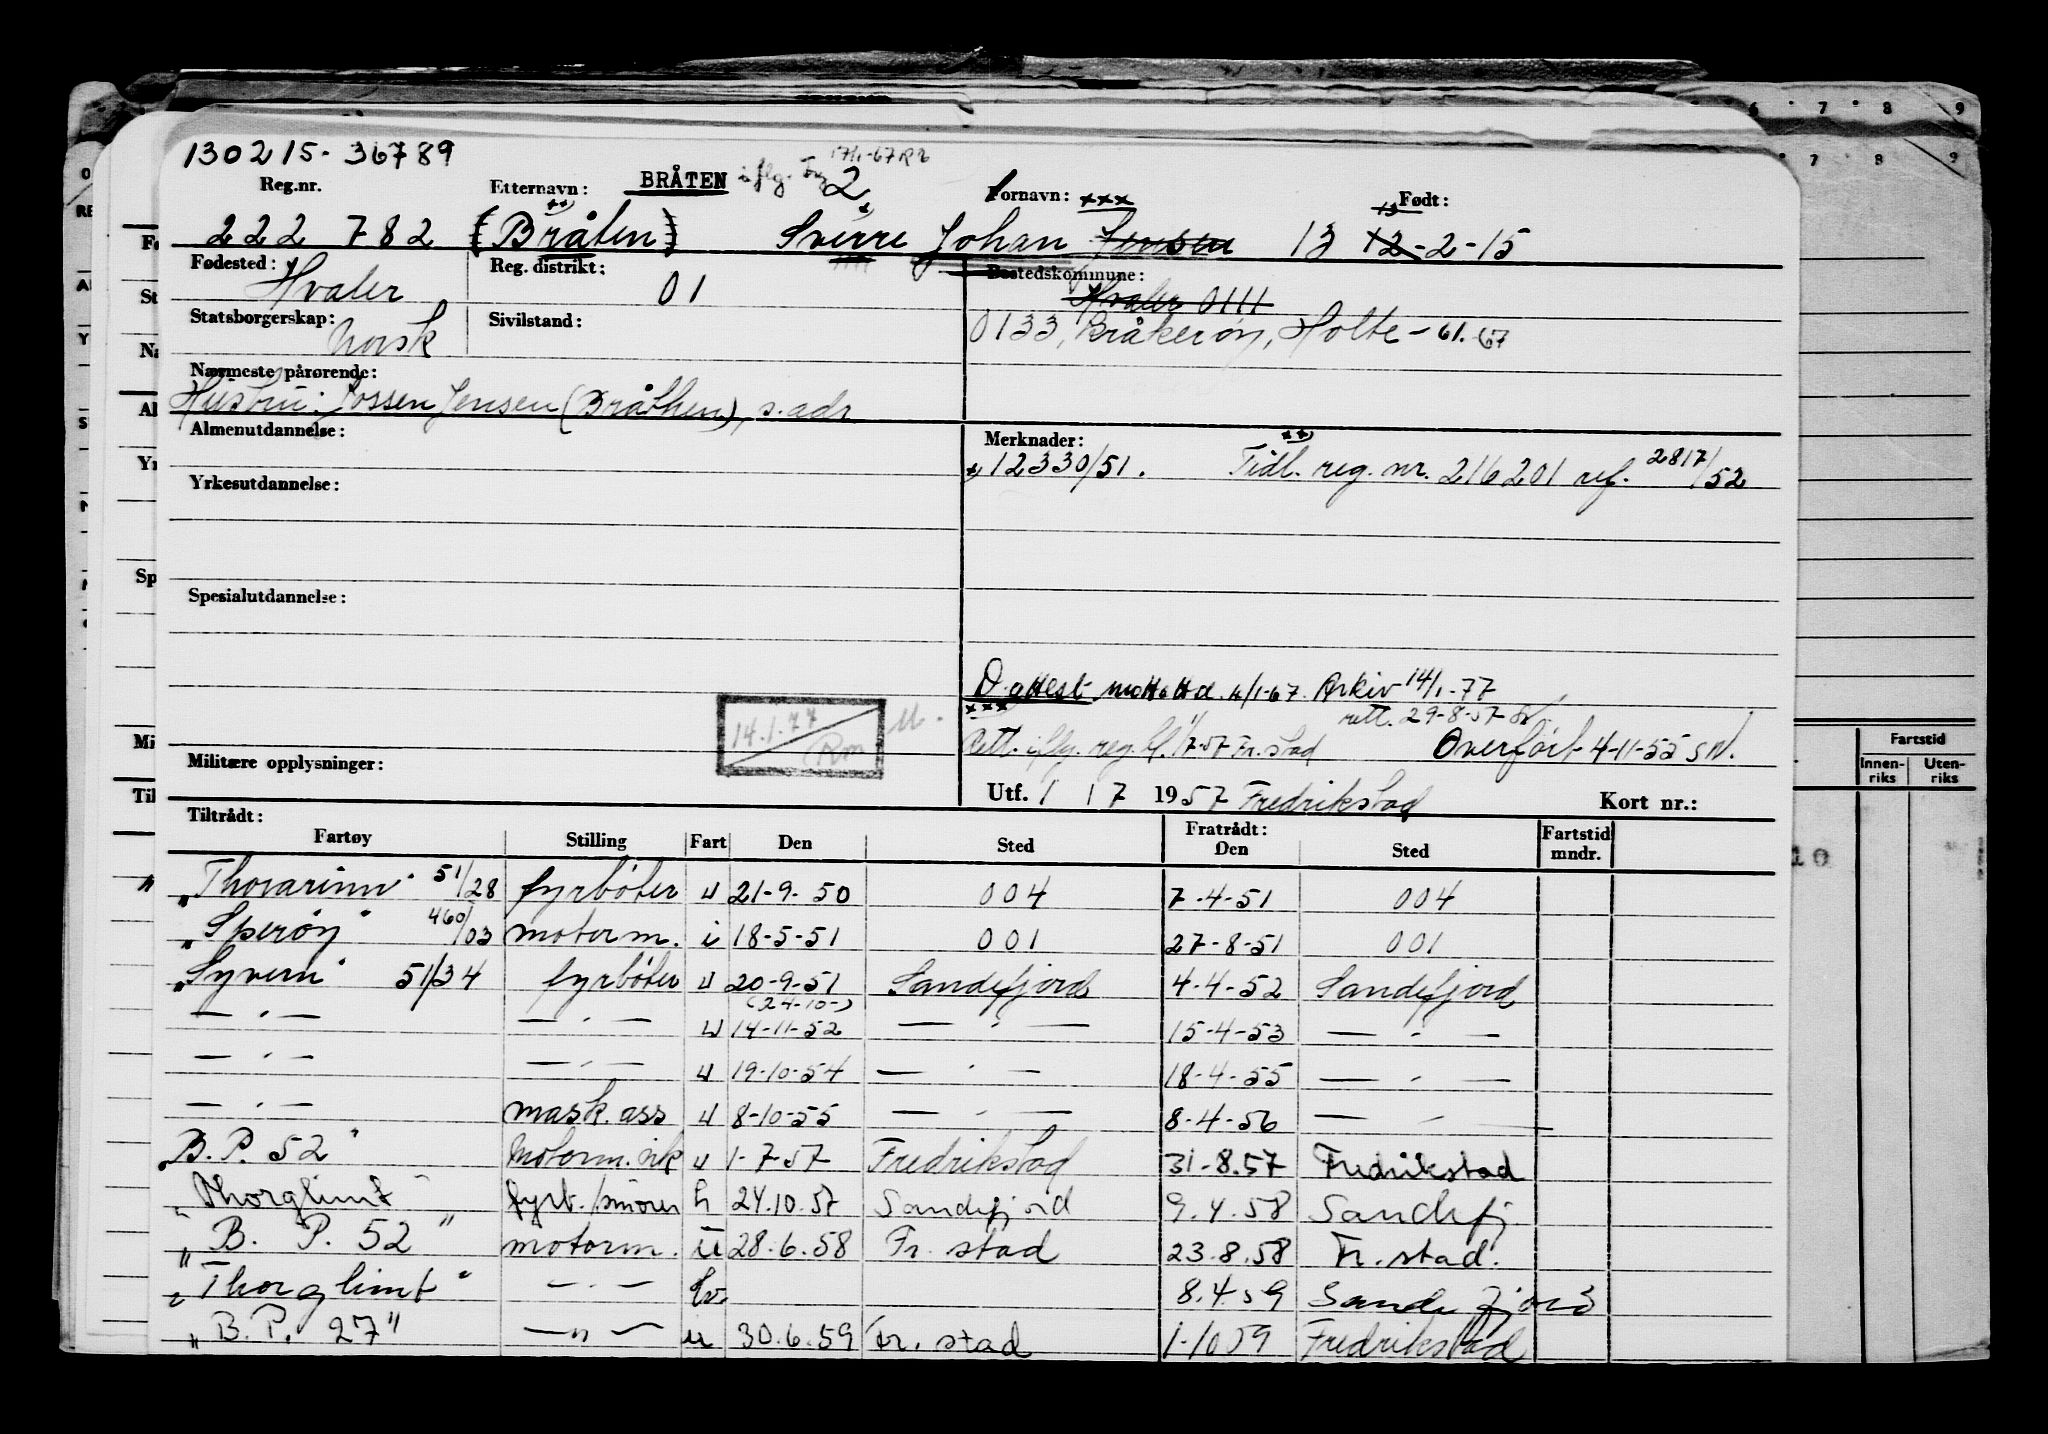 130215-36789
17/1-67 R2
Reg.nr. Etternavn: BRÅTEN i flg. 2 Fornavn: xxx Født:
222 782 (Bråten) Sverre Johan Jensen 13 12-2-15
13
Fødested: Hvaler Reg. distrikt: 01 Bostedskommune:
Hvaler 0111
Statsborgerskap: Norsk Sivilstand: 0133, Kråkerøy, Holte - 61. 67
Nærmeste pårørende:
Hustru: Jossen Jensen (Bråthen), s. adr
Almenutdannelse: Merknader: xx)
x) 12330/51. Tidl. reg. nr. 216201 ref. 2817/52
Yrkesutdannelse:
Spesialutdannelse:
D. attest mottatt 4/1-67. Arkiv 14/1-77
xxx rett. 29-8-57
14.1.77
Rm
Rett. iflg. reg. bl. 1/7-57 Fr.stad Overført 4-11-55 SN.
Militære opplysninger: Utf. 1 / 7 1957 Fredrikstad Kort nr.:
Tiltrådt: Fratrådt: Fartstid
Fartøy Stilling Fart Den Sted Den Sted mndr.
"Thorarinn" 51/28 fyrbøter u 21-9-50 004 7-4-51 004
"Sperøy" 460/03 motorm. i 18-5-51 001 27-8-51 001
"Syvern" 51/34 fyrbøter u 20-9-51 Sandefjord 4-4-52 Sandefjord
(24-10-)
— " — — " — u 14-11-52 — " — 15-4-53 — " —
— " — — " — u 19-10-54 — " — 18-4-55 — " —
— " — mask. ass u 8-10-55 — " — 8-4-56 — " —
"B. P. 52" Motorm. u 1-7-57 Fredrikstad 31-8.57 Fredrikstad
"Thorglimt" fyrb./smører h 24.10.57 Sandefjord 9.4.58 Sandefj.
"B. P. 52" motorm. u 28.6.58 Fr. stad 23.8.58 Fr. stad.
"Thorglimt" — " — hv. 8.4.59 Sandefjord
"B. P. 27" — " — u 30.6.59 Fr. stad 1-10 59 Fredrikstad
Fartstid
Innen-
riks
Uten-
riks
10
6 7 8 9
7 8 9